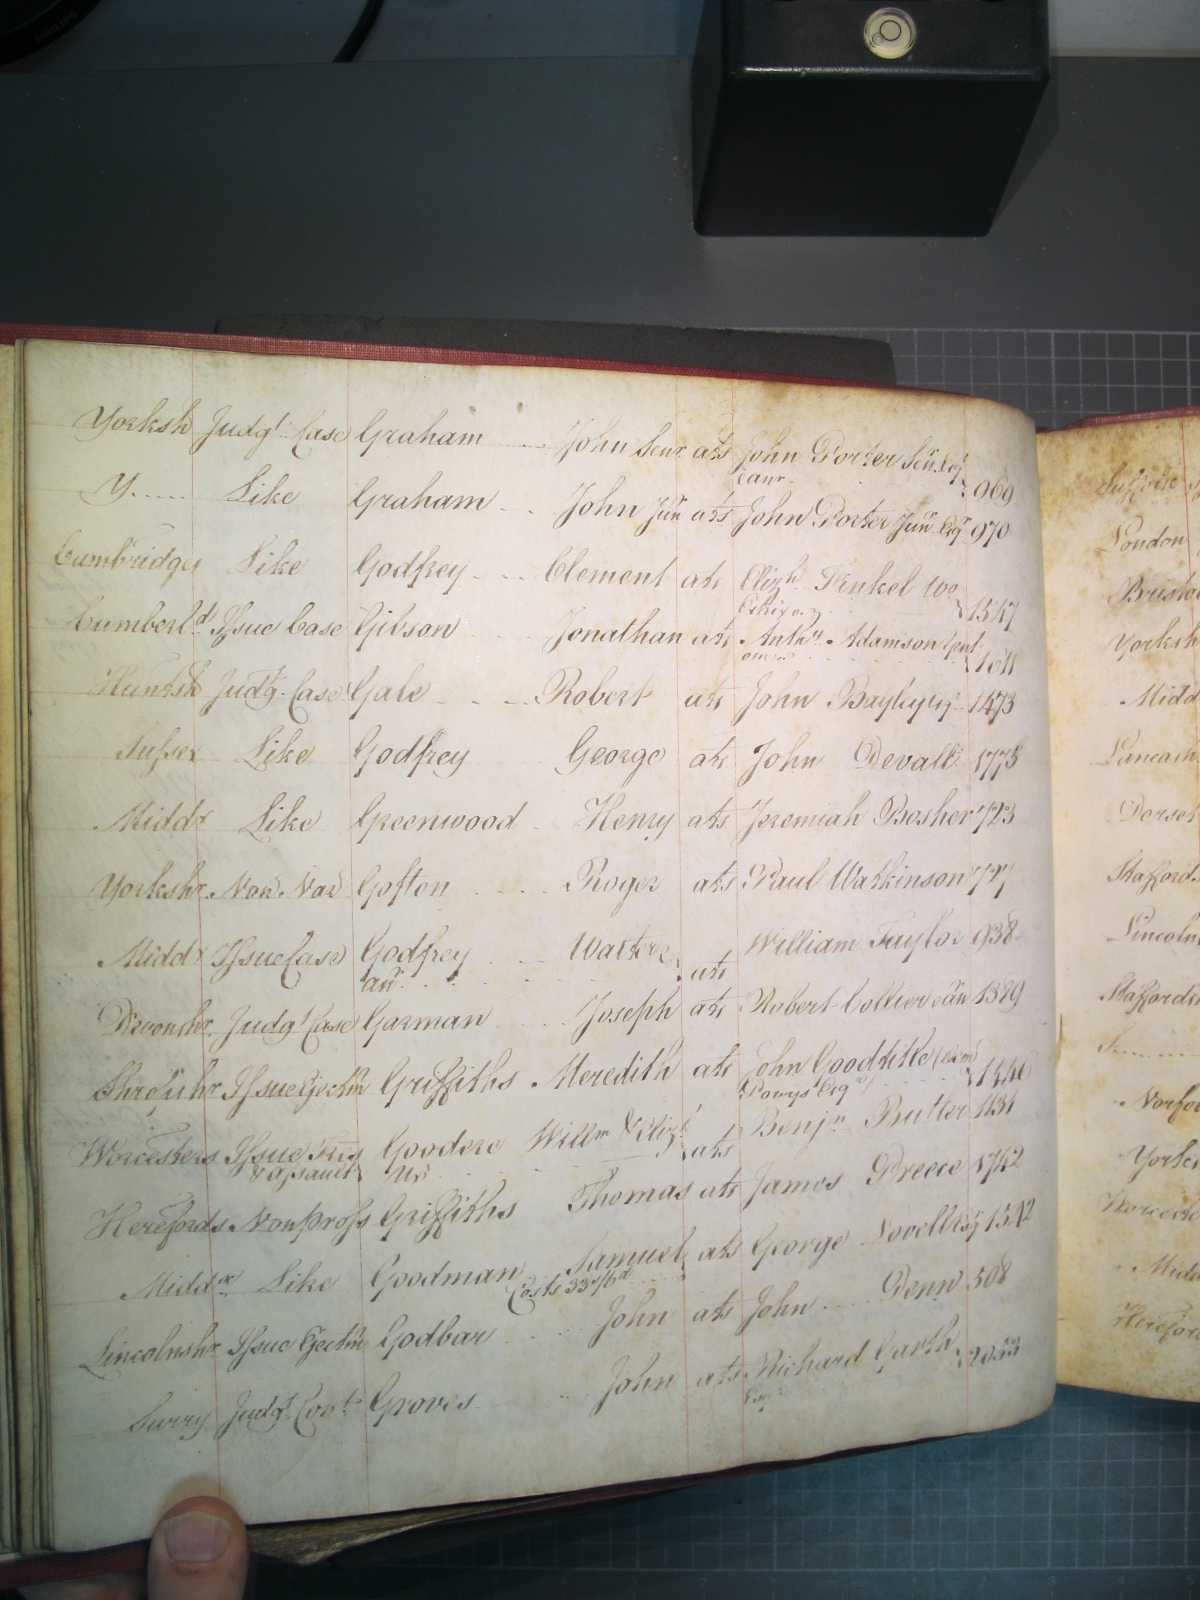 Yorksh Judgt Case Graham John Senr ats John Porter Senr Esqr
Canr 969
Y..... Like Graham John Junr ats John Porter Junr Esqr 970
Cambridges Like Godfrey Clement ats Elizh Finkel Wo
1547
Cumberld Issue Case Gibson Jonathan ats Anthy Adamson Gent
one &c
Huntsh Judgt Case Gale Robert ats John Bayly 1473
Sussex Like Godfrey George ats John Devall 1775
Middx Like Greenwood Henry ats Jeremiah Bosher 723
Yorkshr Non Nar Gofton Roger ats Paul Watkinson 777
Middx Issue Case Godfrey Walter ats William Taylor 938
an
Devonshr Judgt Case Garman Joseph ats Robert Collier 1389
Shropshr Issue Ejectmt Griffiths Meredith ats John Goodtitle (Dem
Powys Esqr) 1446
Worcesters Issue Goodere Willm & Elizh ats Benjn Butter 1131
& assault Ux
Herefords Nonpross Griffiths Thomas ats James Preece 1742
Middx Like Goodman Samuel ats George Lovell Esq 1512
Costs 33s/6d
Lincolnshr Issue Ejectmt Godbar John ats John Denn 508
Surry Judgt Covt Groves John ats Richard Garth 2033
Esqr
London
Bristol
Yorksh
Midd
Lancash
Dorset
Stafford
Lincoln
Staffords
Norfo
Yorks
Worcest
Midd
Hereford